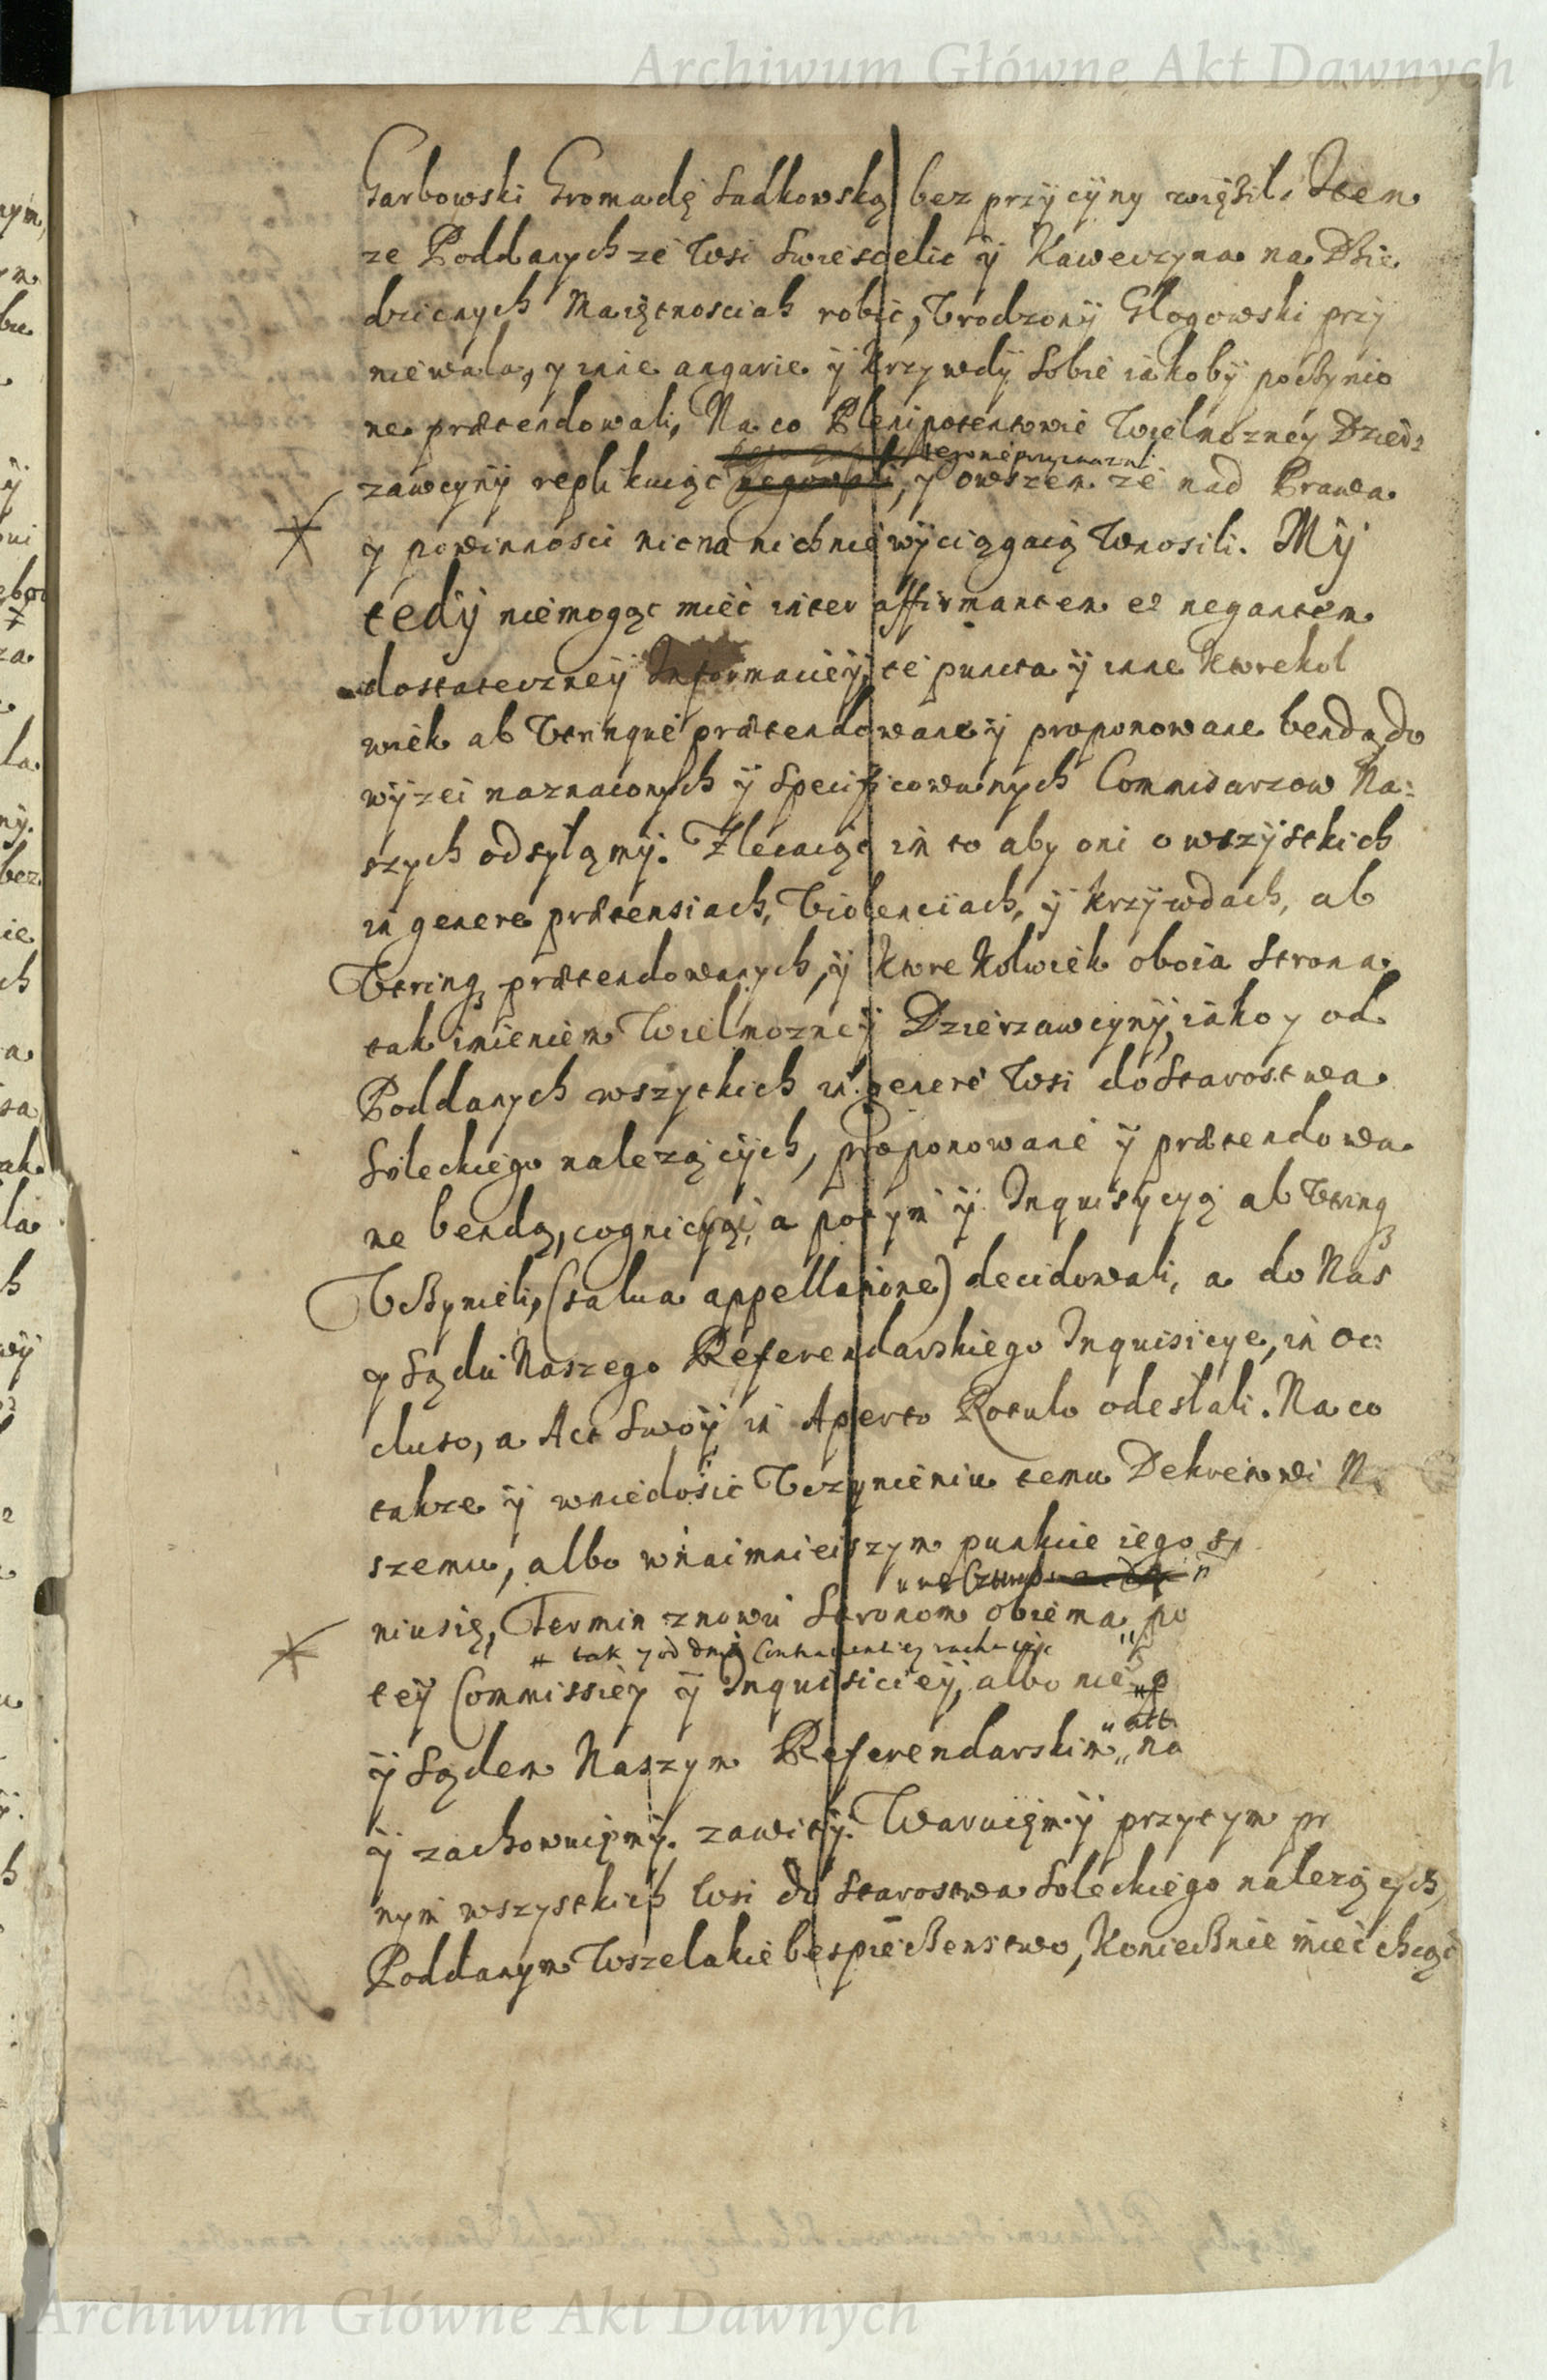 Archiwum Główne Akt Dawnych
Garbowski Gromadę Sadkowską bez przyczyny więził. Item
ze Poddanych ze Wsi Swiescielic ÿ Kaweczyna na Dzie
dzicznych Maiętnosciah robic, Vrodzony Głogowski przy
niewala, y inne angarie ÿ krzywdÿ sobie iakobÿ poczynio
ne prætendowali, Na co Plenipotentowie Wielmozneÿ Dzier
zawcÿnÿ replikuiąc negowali, tego nie przyznali y owszem ze nad Prawa
y powinnosci nic na nich nie wÿciągaią wnosili. Mÿ
tedÿ niemogąc mieć inter affirmantem et negantem
dostateczneÿ Informacieÿ, te puncta ÿ inne ktorekol
wiek ab Vtrinque prætendowane ÿ proponowane bendą, do
wÿzei naznaconÿch ÿ Specificowanych Commisarzow Na:
szych odsyłamÿ. Zlecaiąc im to aby oni o wszÿstkich
in genere prætensiach, Violenciach, ÿ krzÿwdach, ab
Vtrinq prætendowanych, ÿ ktorekolwiek oboia strona
tak imieniem Wielmozneÿ Dzierzawcÿnÿ, iako y od
Poddanych wszytkich in genere Wsi do Starostwa
Soleckiego nalezącÿch, proponowane ÿ prætendowa
ne bendą, cognicÿą, a potym ÿ Inquisÿcyą ab Vtrinq
Vczynieli, (salua appellatione) decidowali, a do Nas
y Sądu Naszego Referendarskiego Inquisicye, in oc:
cluso, a Act Swoÿ in Aperto Rotulo odesłali. Na co
takze ÿ wniedosic Vczynieniu temu Dekretowi N
szemu, albo wnaimnieiszym punkcie iego sp
niusię, Termin znowu Stronom obiema, po
tak y od dnia Contraventiey rachuiąc
teÿ Commissiey ÿ Inquisicieÿ, albo nie
ÿ Sądem Naszym Referendarskim, na
ÿ zachowuięmÿ. zawitÿ. Waruięmÿ przytym pr
nym wszystkich Wsi do Starostwa Soleckiego nalezących,
Poddanym Wszelakie bespieczenstwo, Koniecznie mieć chcąc
Archiwum Główne Akt Dawnych